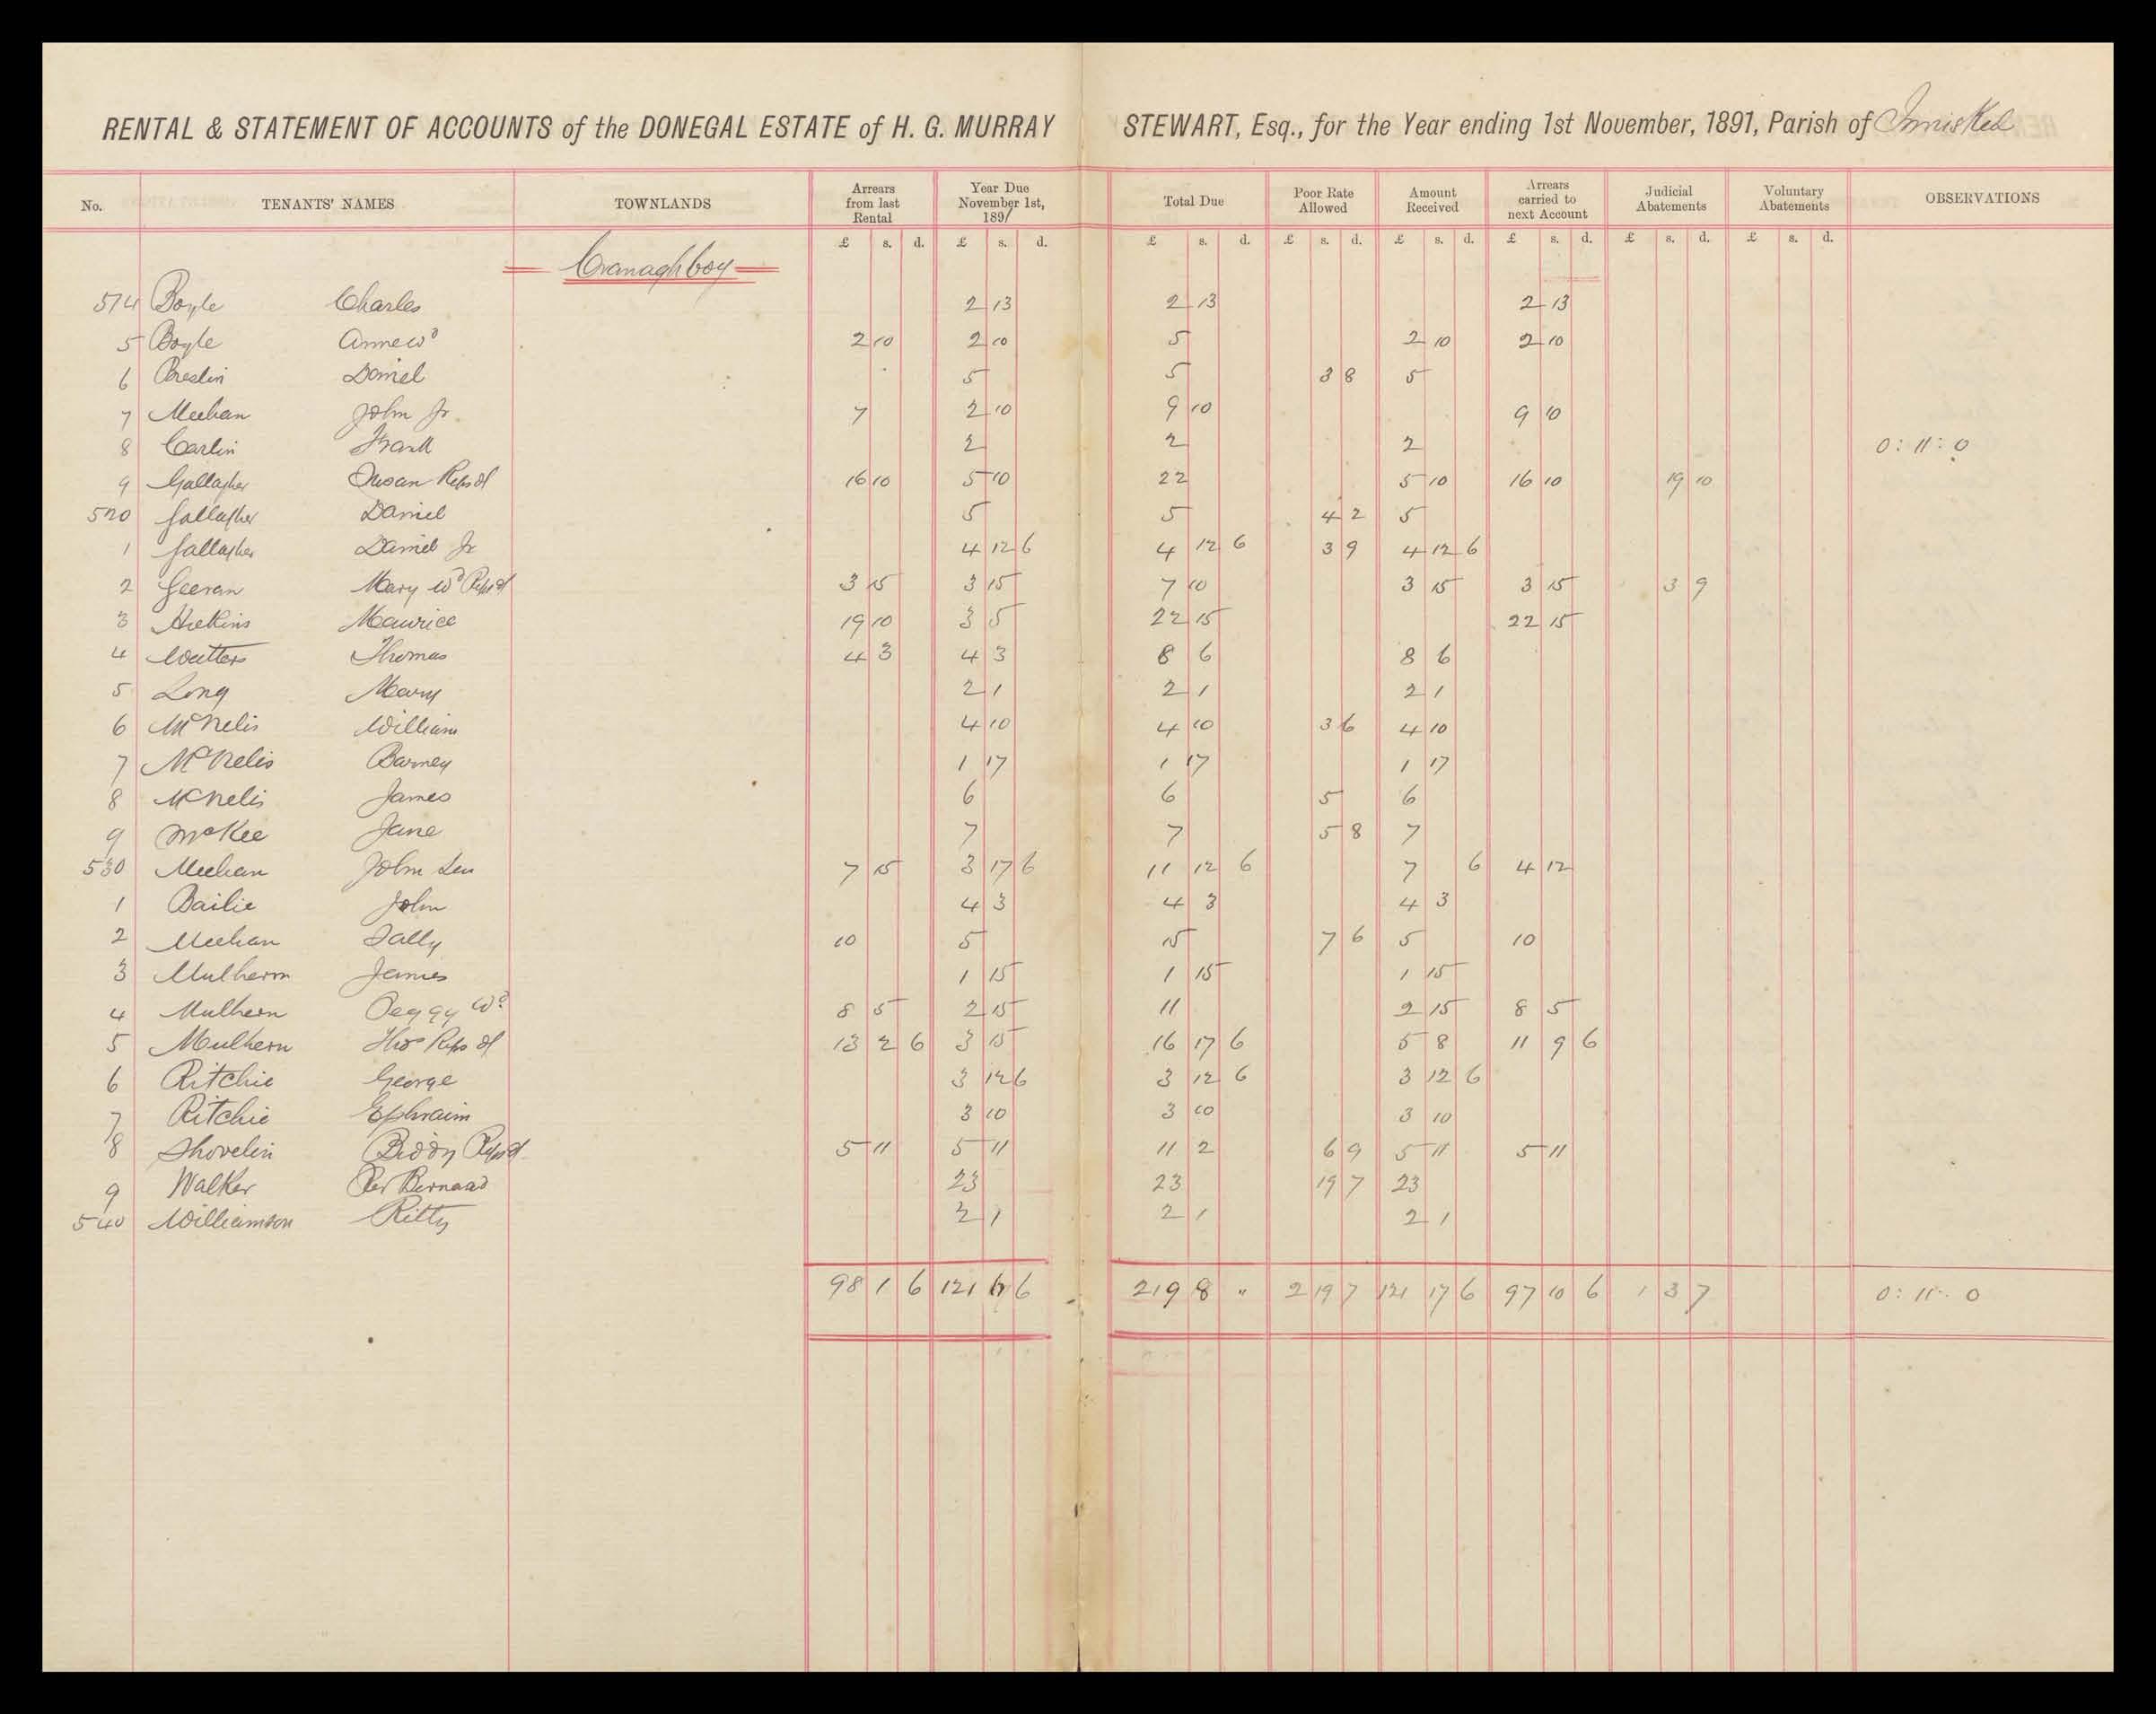 RENTAL & STATEMENT OF ACCOUNTS of the DONEGAL ESTATE of H. G. MURRAY STEWART, Esq., for the Year ending 1st November, 1891, Parish of Inniskeel
No. TENANTS' NAMES TOWNLANDS Arrears from last Rental Year Due November 1st, 1891 Total Due Poor Rate Allowed Amount Received Arrears carried to next Account Judicial Abatements Voluntary Abatements OBSERVATIONS
£ s. d. £ s. d. £ s. d. £ s. d. £ s. d. £ s. d. £ s. d. £ s. d.
Cranaghboy
514 Boyle Charles 2 13 2 13 2 13
5 Boyle Anne wd 2 10 2 10 5 2 10 2 10
6 Breslin Daniel 5 5 3 8 5
7 Meehan John Jr 7 2 10 9 10 9 10
8 Carlin Frank 2 2 2 0 : 11 : 0
9 Gallagher Susan Reps of 16 10 5 10 22 5 10 16 10 19 10
520 Gallagher Daniel 5 5 4 2 5
1 Gallagher Daniel Jr 4 12 6 4 12 6 3 9 4 12 6
2 Geeran Mary wd Reps of 3 15 3 15 7 10 3 15 3 15 3 9
3 Maurice 19 10 3 5 22 15 22 15
4 Watters Thomas 4 3 4 3 8 6 8 6
5 Long Mary 2 1 2 1 2 1
6 McNelis William 4 10 4 10 3 6 4 10
7 McNelis Barney 1 17 1 17 1 17
8 McNelis James 6 6 5 6
9 McKee Jane 7 7 5 8 7
530 Meehan John Sen 7 15 3 17 6 11 12 6 7 6 4 12
1 Bailie John 4 3 4 3 4 3
2 Meehan Sally 10 5 15 7 6 5 10
3 Mulhern James 1 15 1 15 1 15
4 Mulhern Peggy wd 8 5 2 15 11 2 15 8 5
5 Mulhern Thos Reps of 13 2 6 3 15 16 17 6 5 8 11 9 6
6 Ritchie George 3 12 6 3 12 6 3 12 6
7 Ritchie Ephraim 3 10 3 10 3 10
8 Shovelin Biddy Reps of 5 11 5 11 11 2 6 9 5 11 5 11
9 Walker Per Bernard 23 23 19 7 23
540 Williamson Kitty 2 1 2 1 2 1
98 1 6 121 6 219 8 " 2 19 7 121 17 6 97 10 6 1 3 7 0 : 11 : 0